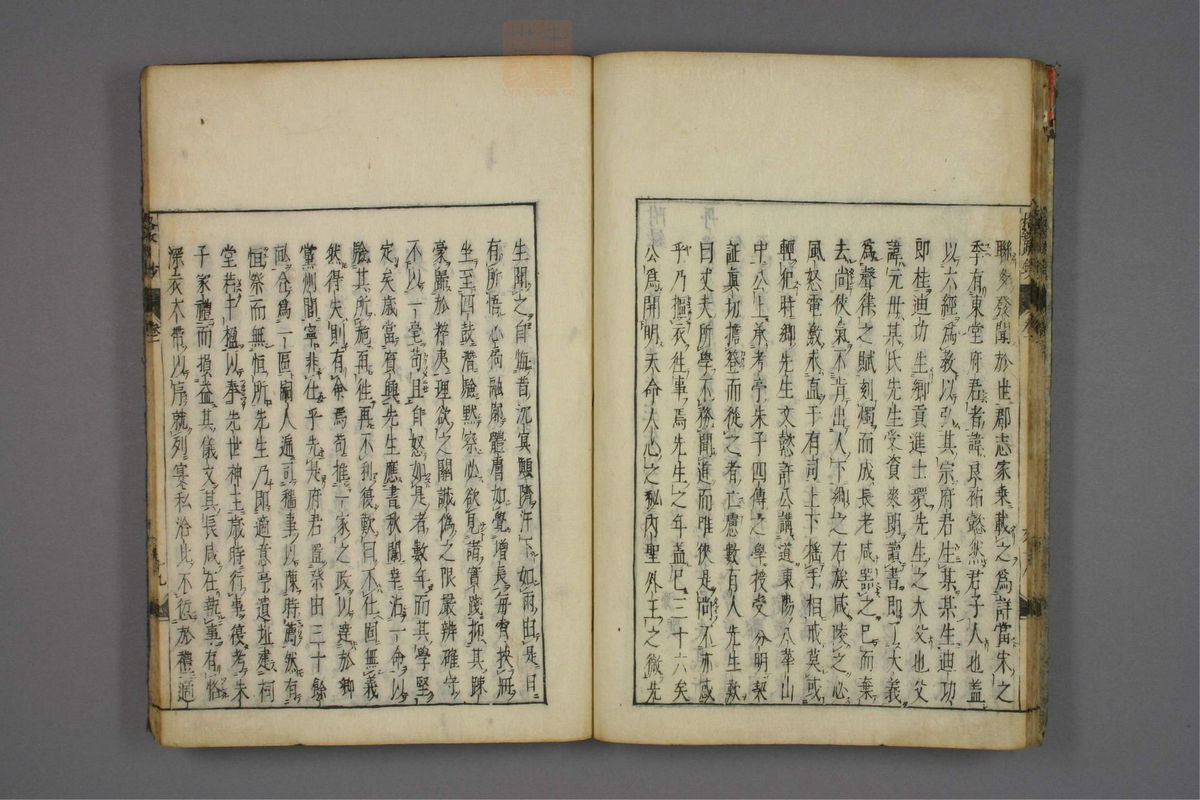 聯多發聞於世郡志家乘載之爲詳當宋之
季有東堂府君者諱良祐懿然君子人也蓋
以六經爲教以弘其宗府君生某某生迪功
郎桂迪功生鄉貢進士環先生之大父也父
諱元母某氏先生受資爽朗讀書即了大義
爲聲律之賦刻燭而成長老咸器之已而棄
去尚俠氣不肯出人下鄉之右族咸陵之必
風怒電激求直于有司上下搖手相戒莫或
輕犯時鄉先生文懿許公講道東陽八華山
中公上承考亭朱子四傳之學授受分明契
証真切擔簦而從之者亡慮數百人先生歎
曰丈夫所學不務聞道而唯俠是尚不亦惑
乎乃摳衣往事焉先生之年蓋已三十六矣
公爲開明天命人心之秘內聖外王之微先
生聞之自悔昔沉冥顛隮汗下如雨由是日
有所悟心扃融廓體膚如覺增長每宵挾冊
坐至四鼓潛驗默察必欲見諸實踐抑其踈
豪歸於粹夷理欲之關誠偽之限嚴辨確守
不以一毫苟且自恕如是者數年而其學堅
定矣歲當賓興先生應書秋闈幸沾一命以
驗其所施再往再不利復歎曰不仕固無義
然得失則有命焉苟推一家之政以達於鄉
黨州閭寧非仕乎先是府君置祭田三十餘
畝合爲一區嗣人遞司穡事以陳時薦然有
恒祭而無恒所先生乃即適意亭遺址建祠
堂若干楹以奉先世神主歲時行事復考朱
子家禮而損益其儀文其長咸在執事有恪
深衣大帶以序就列宴私洽比不愆於禮適